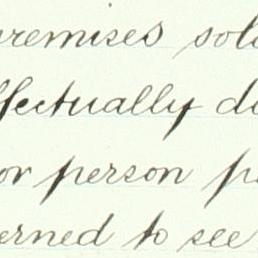 premises sol
ffectually d
or person p
erned to see